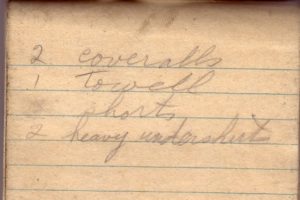 2 coveralls
1 towell
shorts
2 heavy undershirts